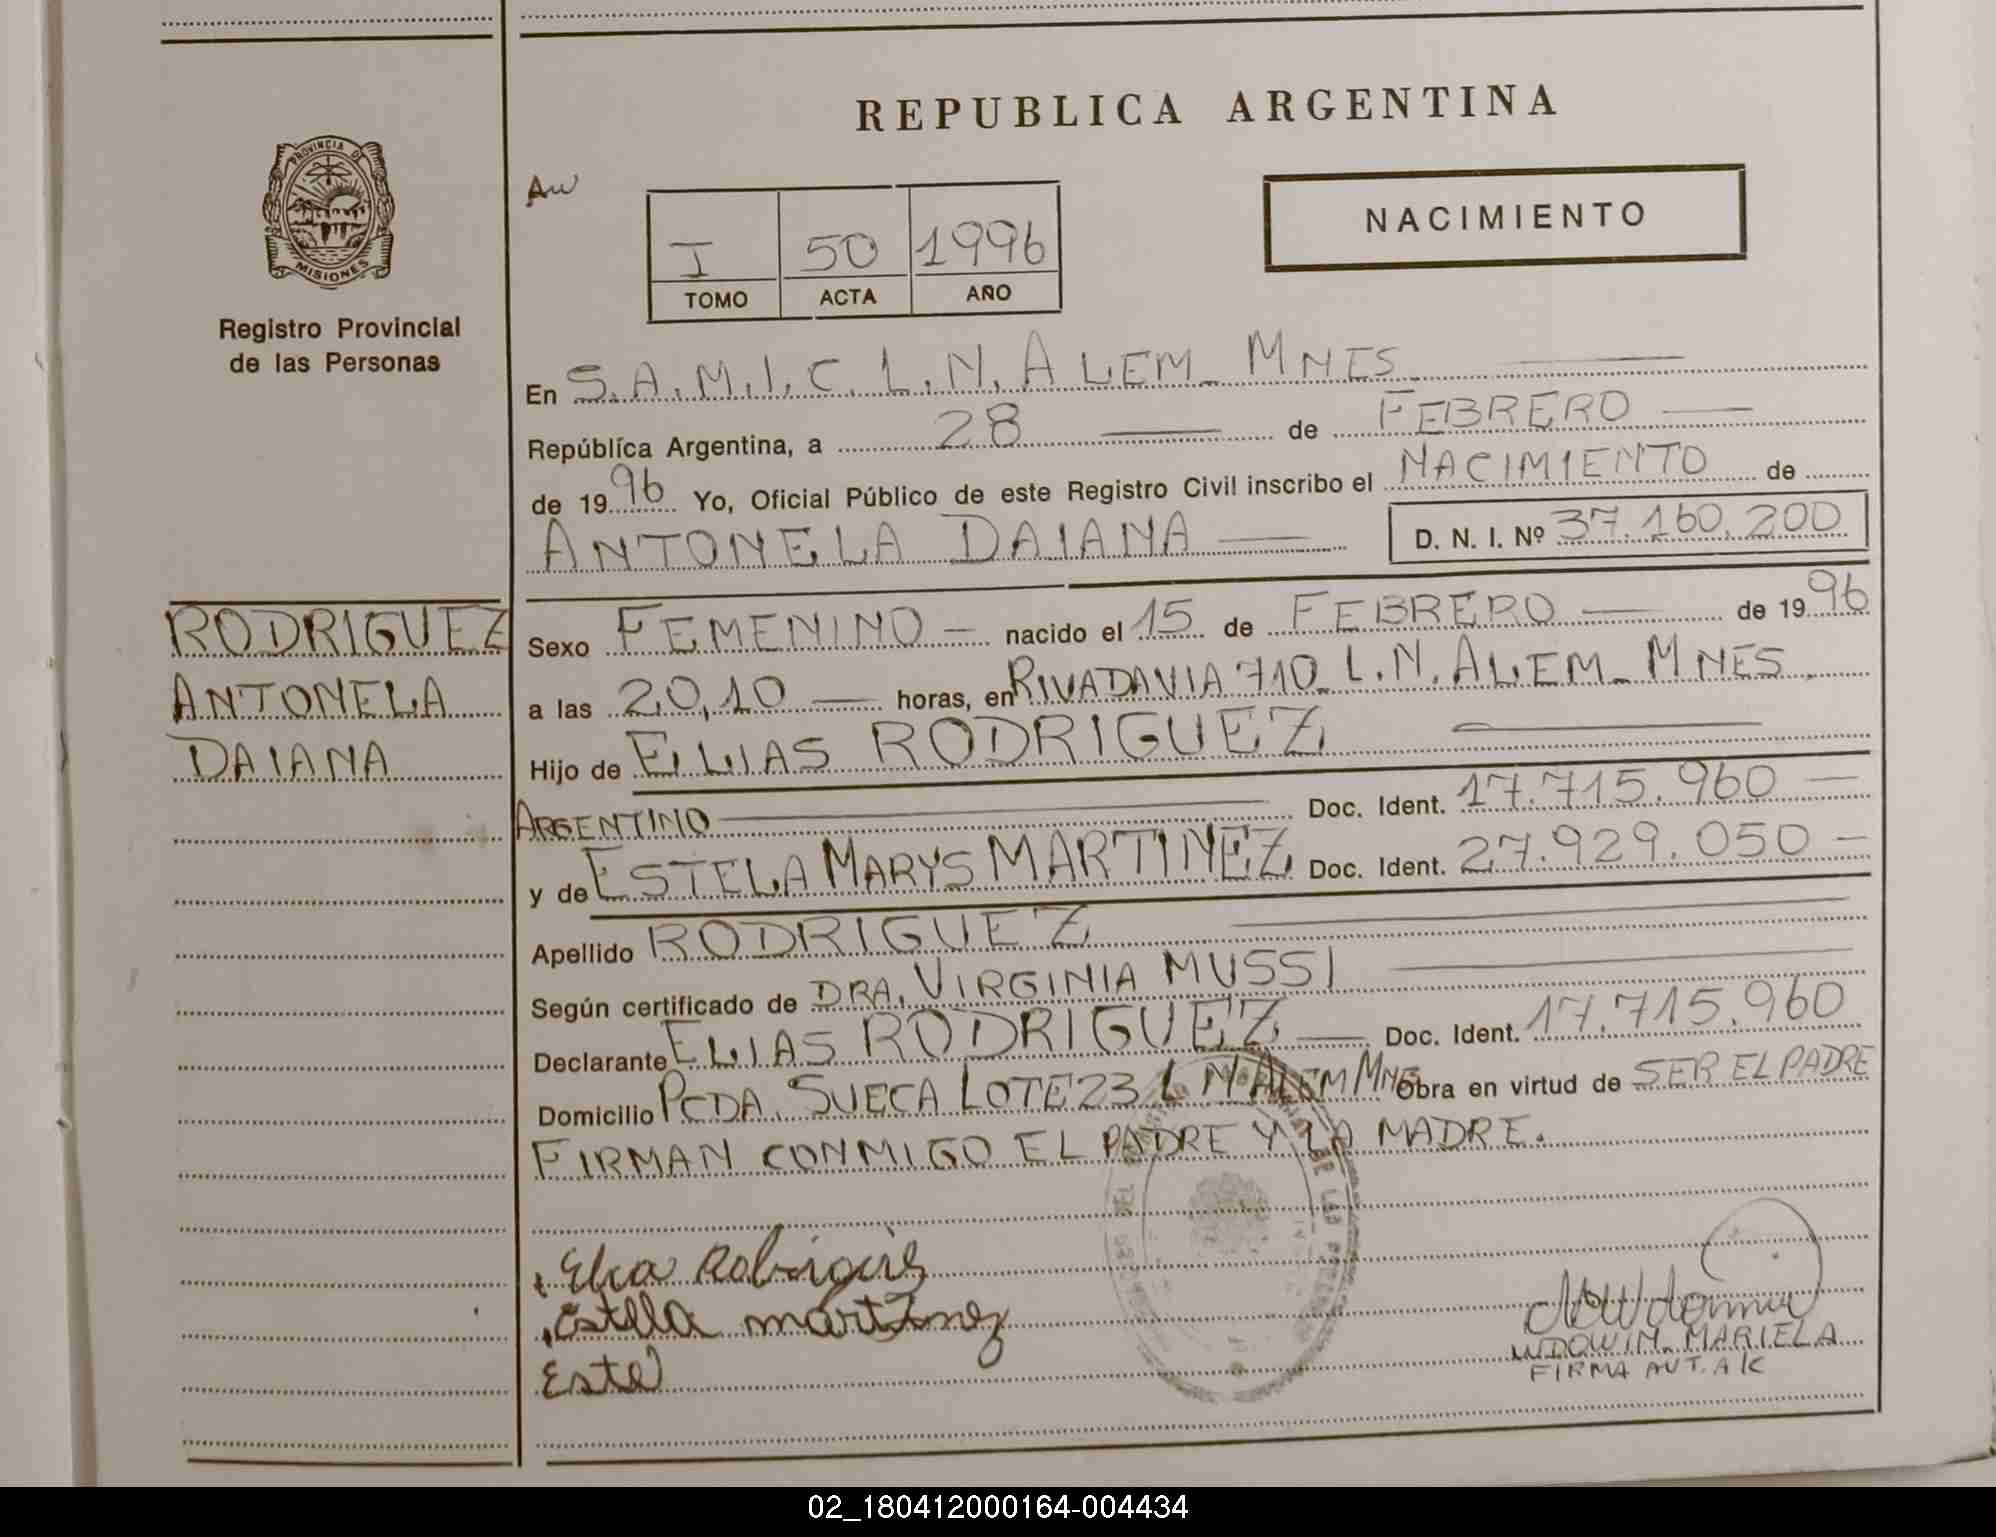 REPUBLICA ARGENTINA
PROVINCIA DE
MISIONES
Registro Provincial
de las Personas
NACIMIENTO
I 50 1996
TOMO ACTA AÑO
En S.A.M.I.C. L.N. ALEM_ MNES
República Argentina, a 28 de FEBRERO
de 1996 Yo, Oficial Público de este Registro Civil inscribo el NACIMIENTO de
ANTONELA DAIANA D. N. I. Nº 37.160.200
RODRIGUEZ
ANTONELA
DAIANA
Sexo FEMENINO nacido el 15 de FEBRERO de 1996
a las 20,10 horas, en RIVADAVIA 710_ L.N. ALEM_ MNES
Hijo de ELIAS RODRIGUEZ
ARGENTINO Doc. Ident. 17.715.960
y de ESTELA MARYS MARTINEZ Doc. Ident. 27.929.050
Apellido RODRIGUEZ
Según certificado de DRA. VIRGINIA MUSSI
Declarante ELIAS RODRIGUEZ Doc. Ident. 17.715.960
Domicilio PCDA. SUECA LOTE 23 L N ALEM MNES Obra en virtud de SER EL PADRE
FIRMAN CONMIGO EL PADRE Y LA MADRE.
Estella martinez
Este
MARIELA
FIRMA AUT. A/C
02_180412000164-004434